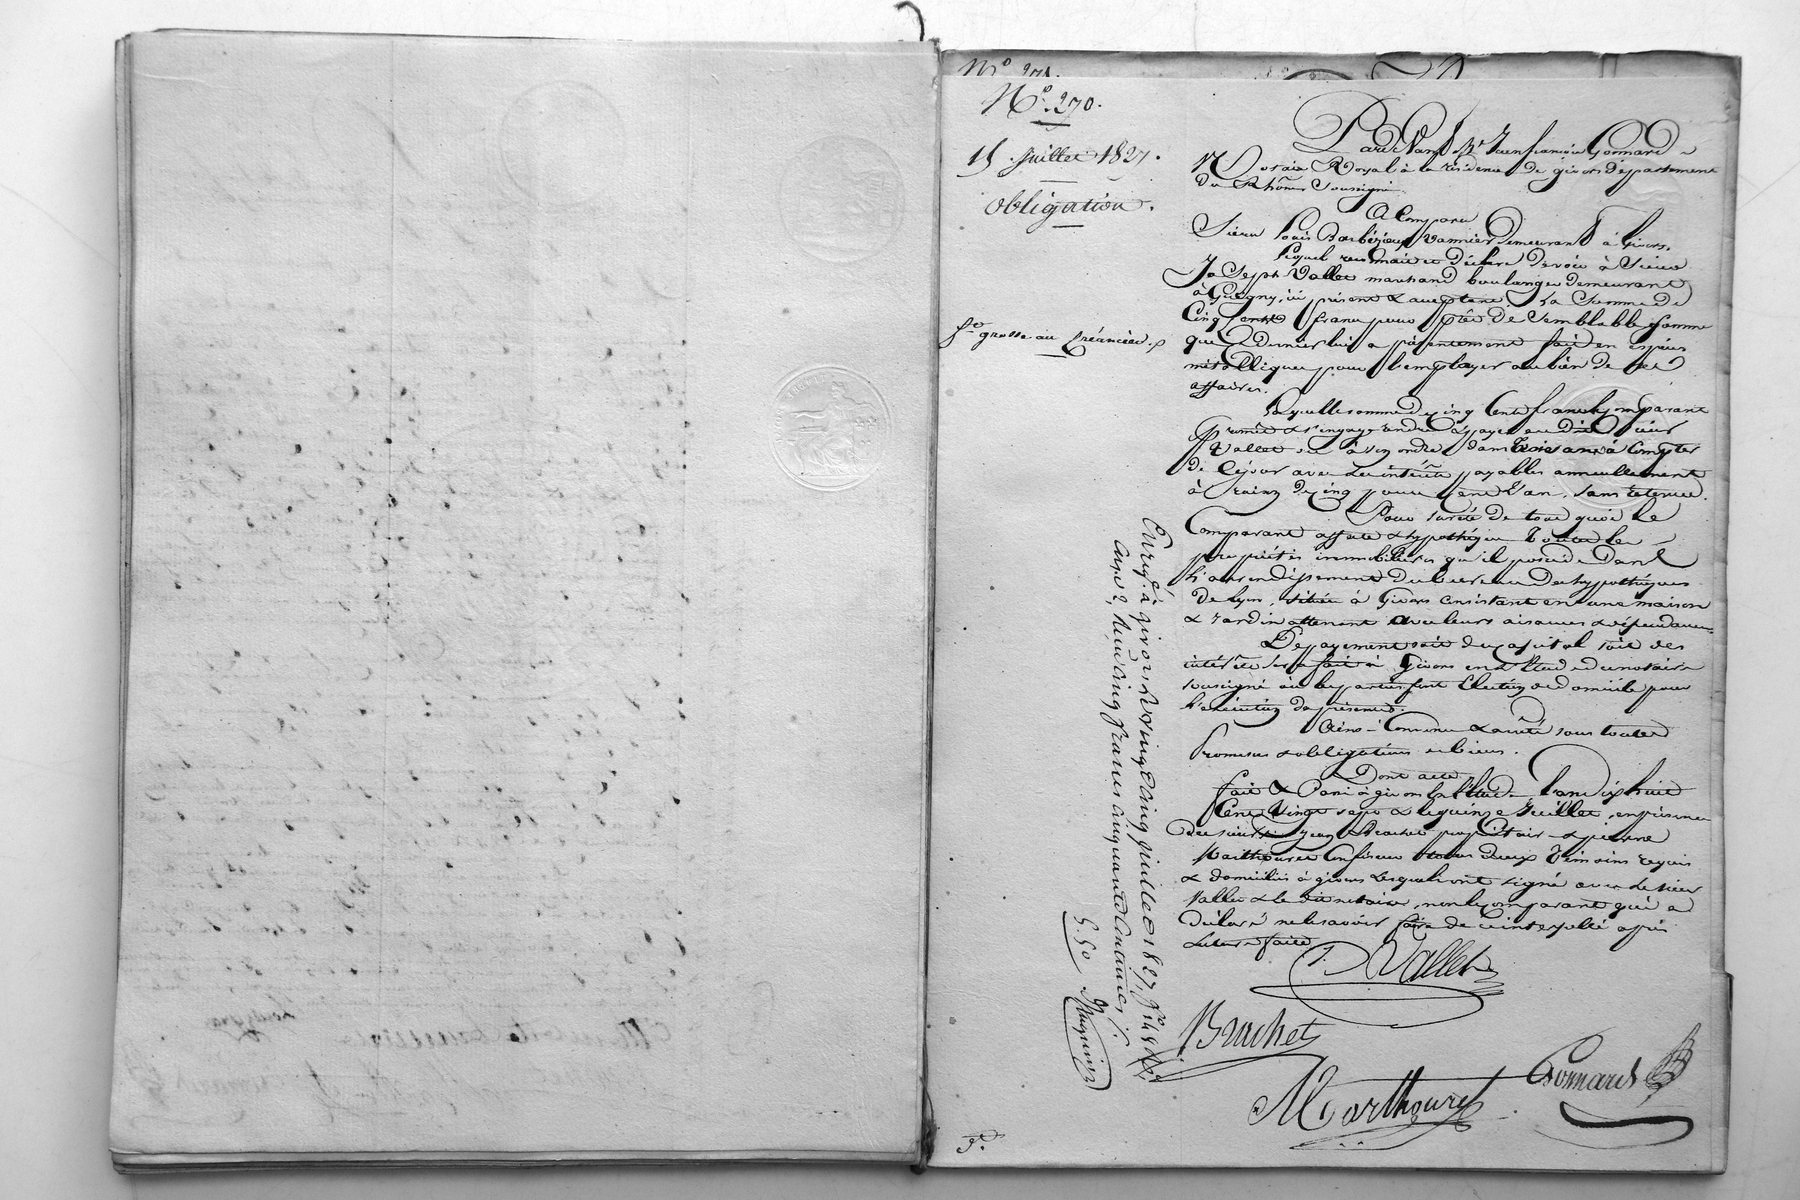 N° 271.
N° 270.
15 Juillet 1827.
Obligation.
fe grosse au Créancier.
Pardevant Me Jean françois Gomard
Notaire Royal à la résidence de givors département
du Rhône Soussigné
A Comparu
Sieur Louis Barbézieux Vannier demeurant à Givors,
Lequel reconnait et déclare devoir à Sieur
Joseph Vallet marchand boulanger demeurant
à Grigny, ici présent & acceptant, La Somme de
Cinq Cents francs pour prêt de Semblable Somme
que Ce dernier lui a présentement fait en espèces
métalliques pour l'employer au bien de ses
affaires.
Laquelle somme de Cinq Cents francs le Comparant
promet & s'engage rendre & payer au dit Sieur
Vallet ou à son ordre dans trois ans à Compter
de Ce jour avec les intérêts payables annuellement
à raison de Cinq pour Cent l'an, sans retenue.
Pour sureté de tout quoi Le
Comparant affecte & hypothèque toutes les
propriétés immobilières qu'il possède dans
L'arrondissement du bureau des hypothèques
de Lyon, situées à Givors Consistant en une maison
& Jardin attenant avec leurs aisances & dépendances
Le payement soit du Capital soit des
intérêts sera fait à Givors en l'Etude du notaire
soussigné où les parties font Election de domicile pour
L'exécution des présentes.
Ainsi Convenu & arrêté sous toutes
Promesses & obligations de biens.
Dont acte
fait & Passé à givors En l'Etude L'an dix huit
Cent Vingt sept & le quinze Juillet, en présence
des sieurs Bruchet propriétaire & pierre
Marthouret Confiseur tous deux témoins requis
& domiciliés à givors Lesquels ont signé avec Le Sieur
Vallet & le dit notaire, non le Comparant qui a
déclaré ne le savoir faire de Ce interpellé après
Lecture faite.
J. Vallet
Bruchet
Marthouret
Gomard
Enreg. à givors le vingt Cinq juillet 1827, fo
Case 2, Reçu Cinq francs Cinquante Centimes
5.50